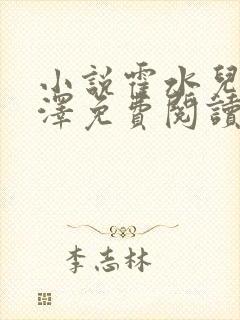 小說霍水兒
澤免費閱讀
李志林